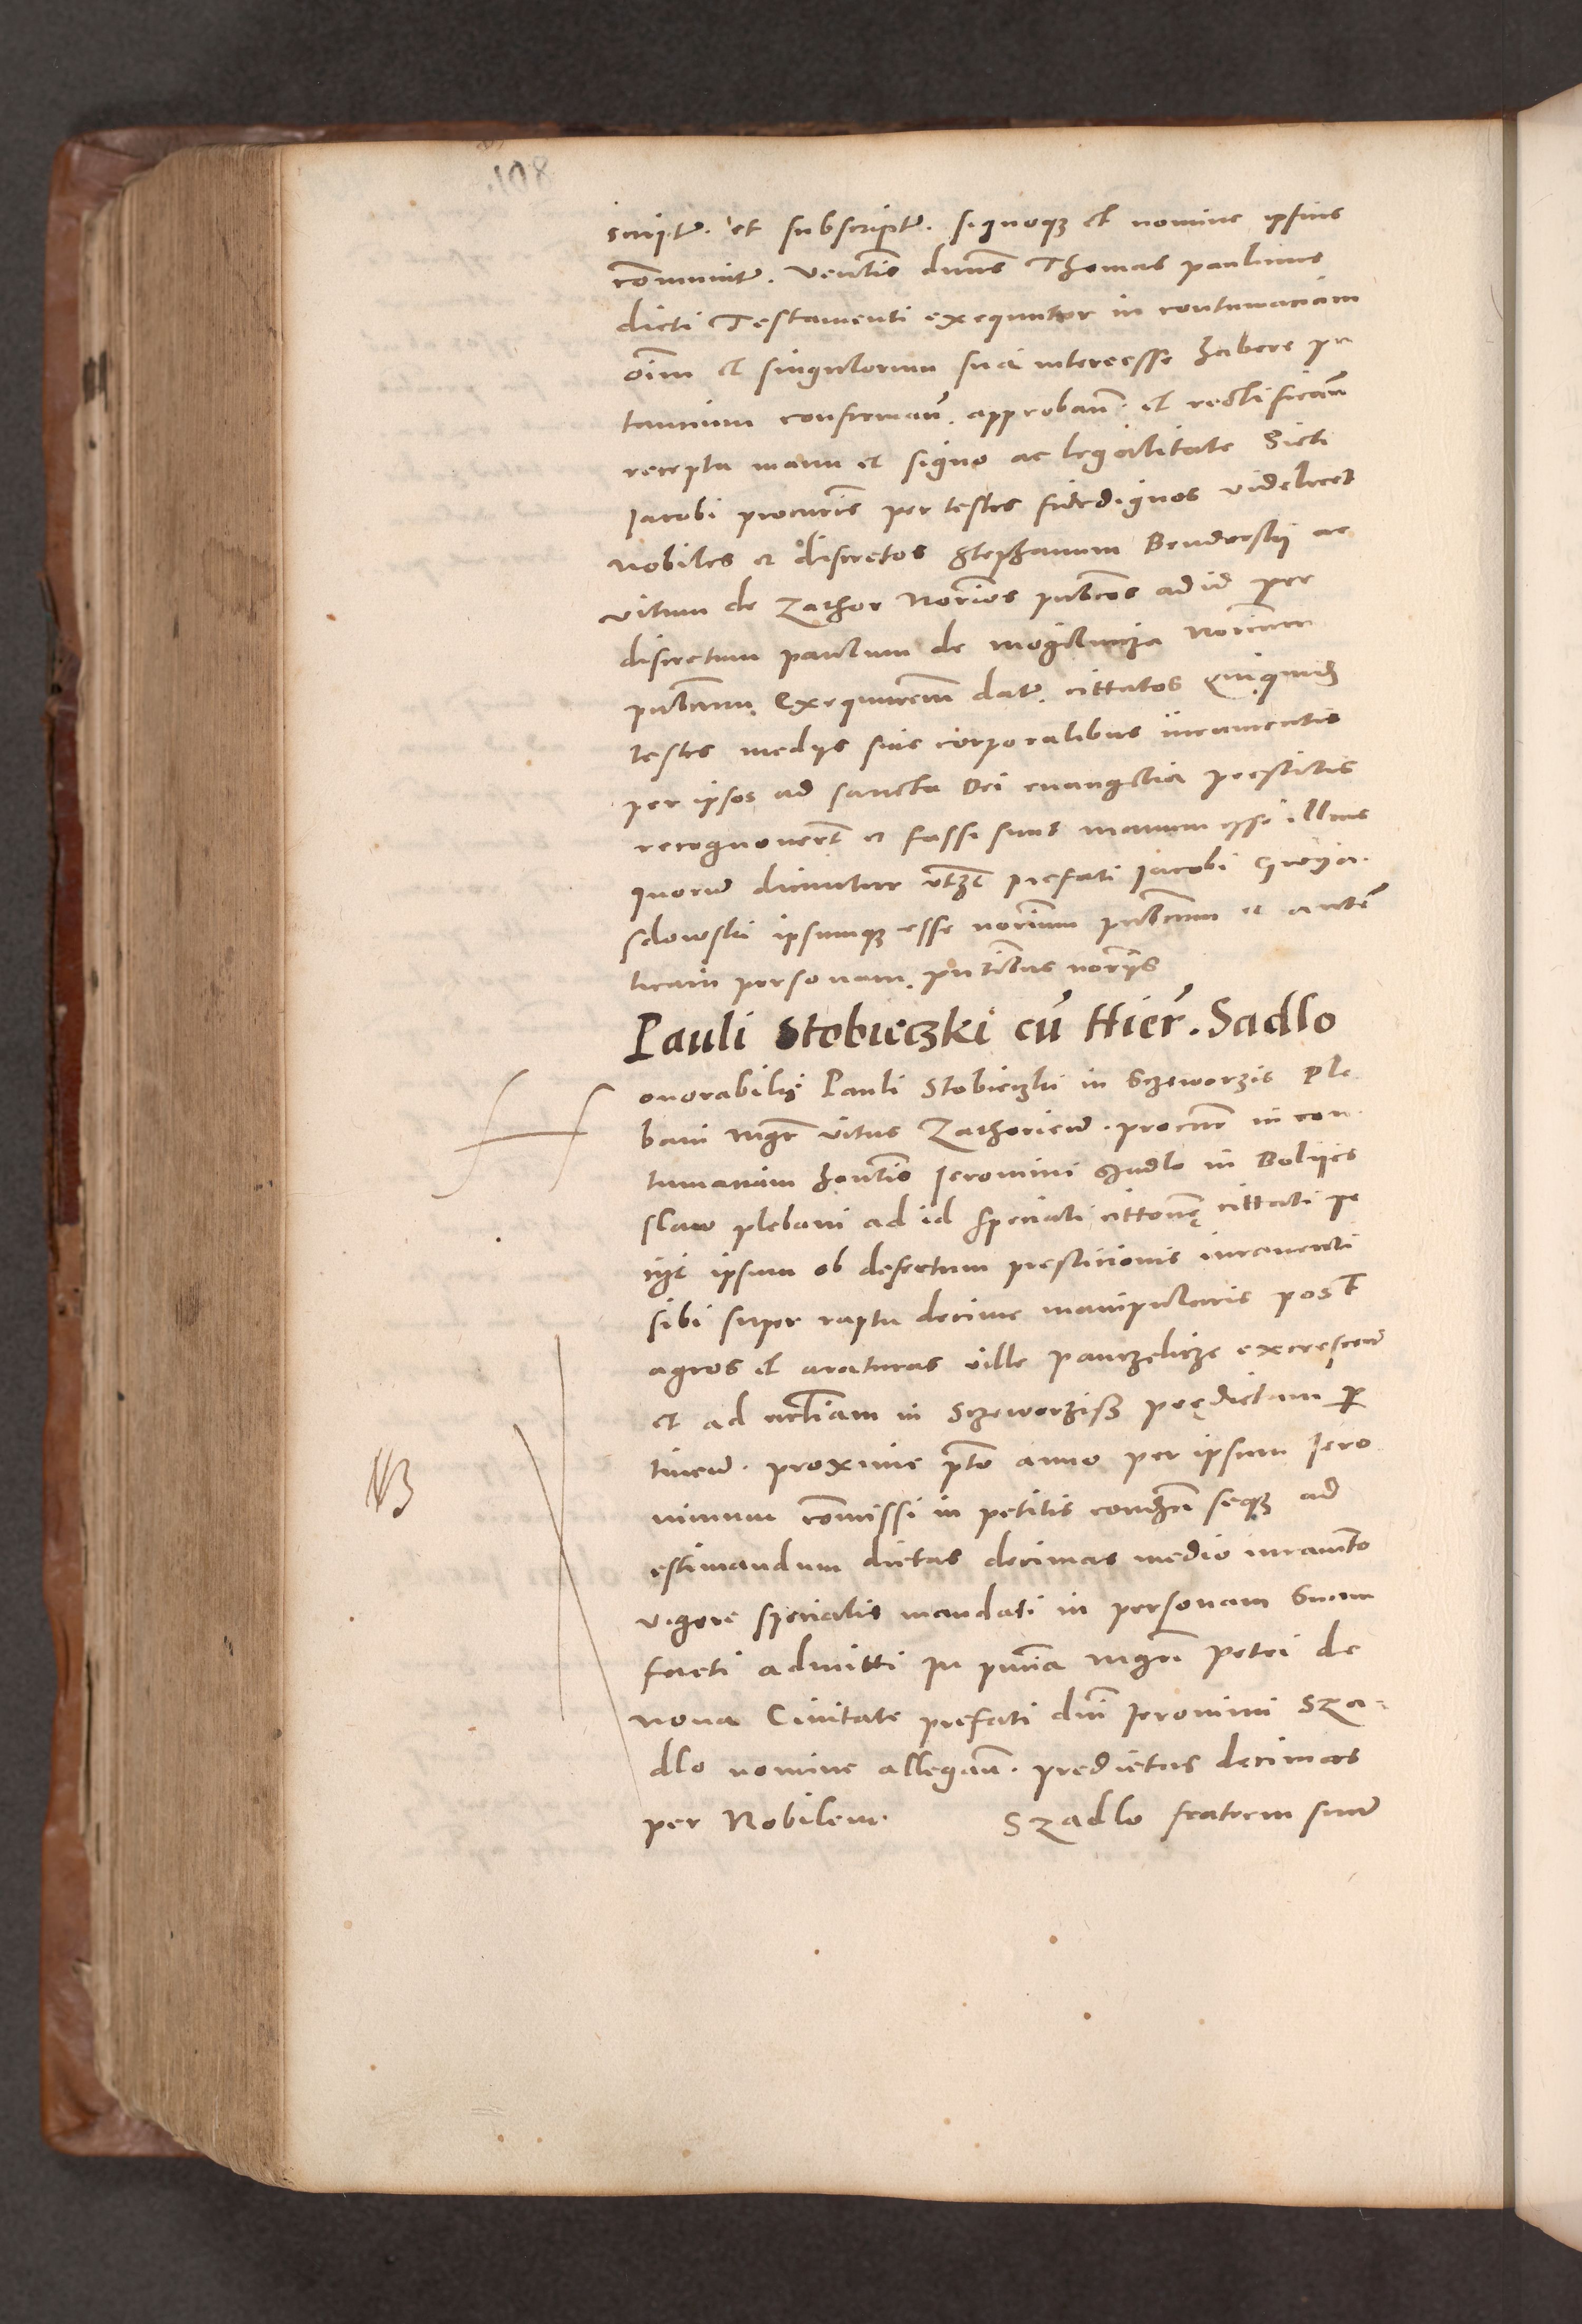 scriptu. et subscriptu. signoqʒ et nomine ipsius
com̄unitu. Ventis dnus Thomas paulinus
dicti Testamenti exequutor in contumaciam
oīm et singulorum sua interesse habere pu
tancium confirmaň. approbaň. et rectificaň
recepta manu et signo ac legalitate dicti
Iacobi procuris per testes fidedignos videlicet
Nobiles et discretos Stephanum Benderskii ac
vitum de Zathor Norios publicos ad id per
discretum paulum de mogilnicza Norium
publicum Exequutorem datu. cittatos Quiquidē
testes medys suis corporalibus iuramentis
per ipsos ad sancta Dei euangelia prestitis
recognouert et fassi sunt manum esse illius
quorum dicuntur vtʒ prefati Iacobi
sdowski ipsumqʒ esse norium publicum et auten
ticam personam, pntibus noriys
Pauli Stobieczki cū Hier̄. Sadlo
Honorabilis Pauli Stobieczki in Sczeworzis Ple
bani mgr vitus Zathorien. procur in con
tumaciam honlis Ieronimi Szadlo in Bolijes
slaw plebani ad id speciali cittone cittati pe
ijt ipsum ob defectum presticionis iuramenti
sibi super raptu decime manipularis post
agros et araturas ville panczelicze excrescen
et ad ecliam in Sczeworziss predictam per
tinen. proxime pto anno per ipsum Iero
nimum com̄issi in petitis condemnari seqʒ ad
estimandum dictas decimas medio iuramto
vigore specialis mandati in personam suam
facti admitti In pntia mgri Petri de
noua Ciuitate prefati dni Ieronimi Sza-
dlo nomine allegaň. predictas decimas
per Nobilem Szadlo fratrem suum
NB